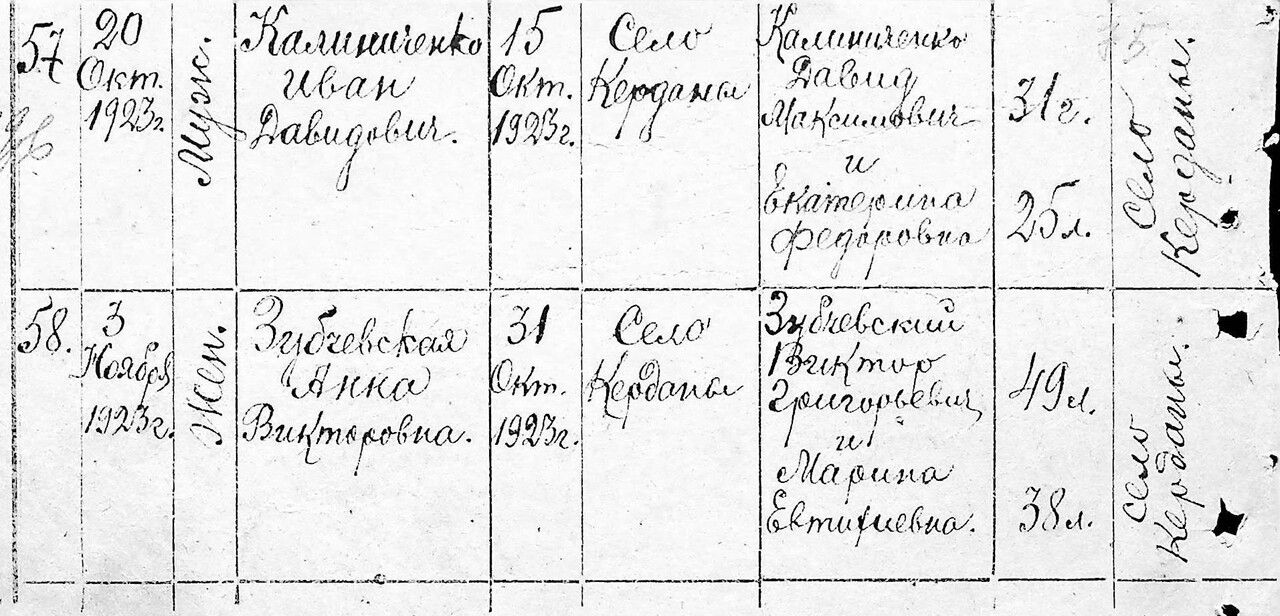 57
20
Окт.
1923г.
Муж.
Калиниченко
Иван
Давидович.
15
Окт.
1923г.
Село
Керданы
Калиниченко
Давид
Максимович
и
Екатерина
Федоровна
31г.
25л.
Село
Керданы.
58.
3
Ноября
1923г.
Жен.
Зубчевская
Анна
Викторовна.
31
Окт.
1923г.
Село
Керданы
Зубчевский
Виктор
Григорьевич
и
Марина
Евтихиевна.
49л.
38л.
Село
Керданы.